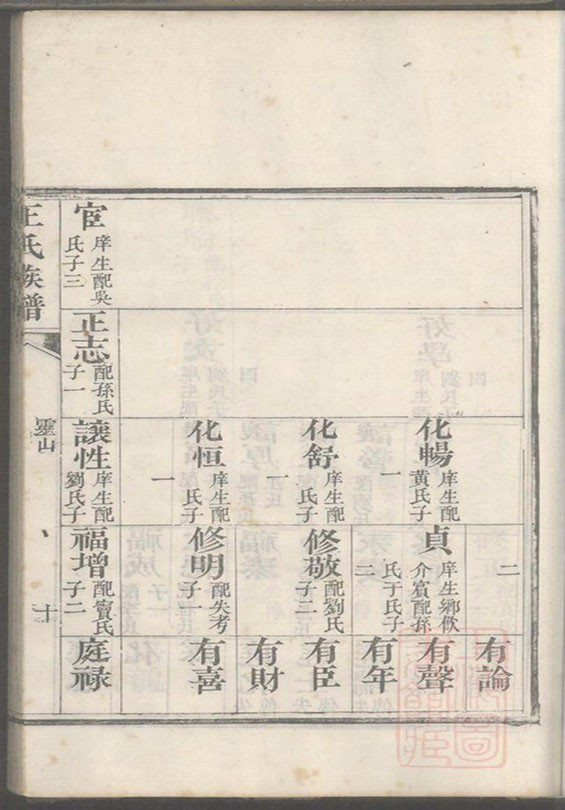 二
有論
化暢 庠生配黃氏子
一
貞 庠生鄉飲介賓配孫氏于氏子
二
有聲
有年
化舒 庠生配氏子
一
修敬 配劉氏子二
有臣
有財
化恒 庠生配氏子
一
修明 配失考子一
有喜
宦 庠生配吳氏子三
正志 配孫氏子一
讓性 庠生配劉氏子
福增 配竇氏子二
庭祿
王氏族譜
靈山
十